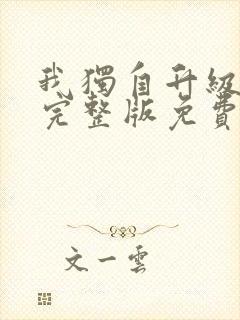 我獨自升級
完整版免費
文一雲